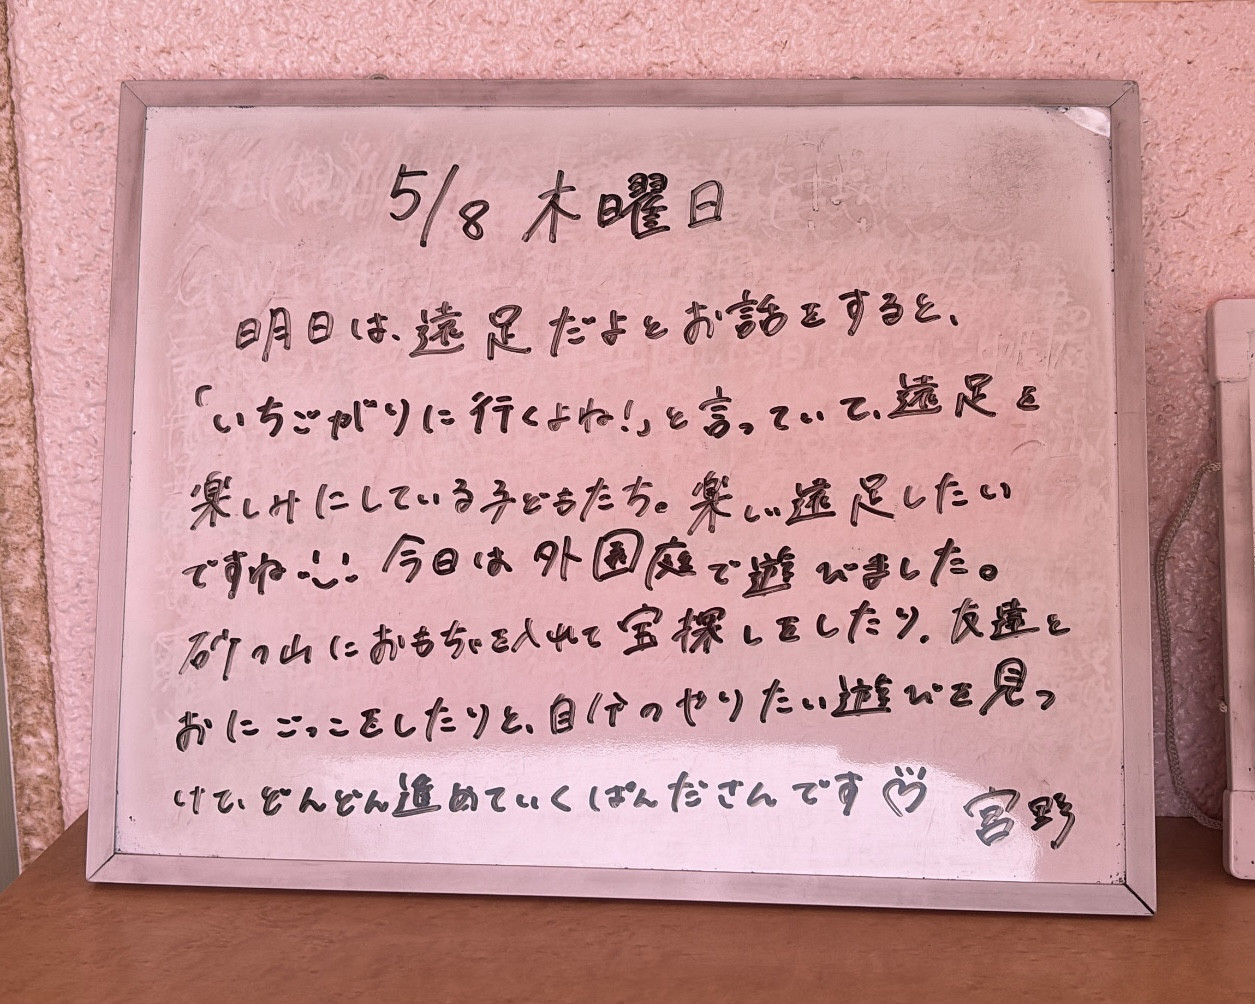 5/8 木曜日
明日は、遠足だよとお話をすると、
「いちごがりに行くよね!」と言っていて、遠足を
楽しみにしている子どもたち。楽しい遠足したい
ですね。今日は外園庭で遊びました。
砂の山におもちゃを入れて宝探しをしたり、友達と
おにごっこをしたりと、自分のやりたい遊びを見つ
けて、どんどん進めていくぱんださんです♡
宮野